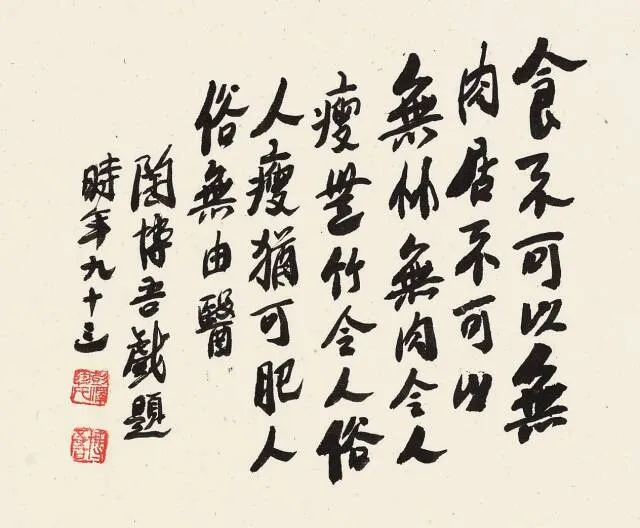 食不可以無
肉居不可以
無竹無肉令人
瘦無竹令人俗
人瘦猶可肥人
俗無由醫
陶博吾戲題
時年九十三
彭澤陶氏
博吾